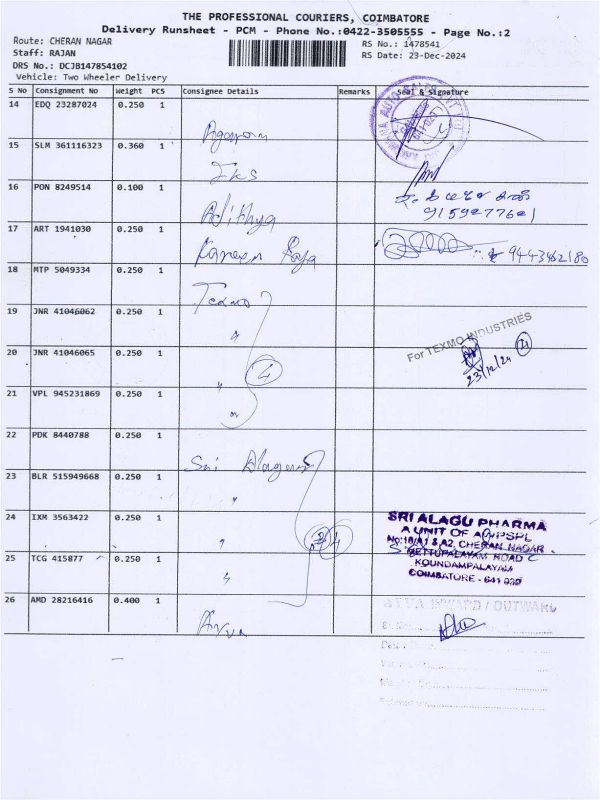 THE PROFESSIONAL COURIERS, COIMBATORE
Delivery Runsheet - PCM - Phone No.:0422-3505555 - Page No.:2
Route: CHERAN NAGAR
RS No.: 1478541
Staff: RAJAN
RS Date: 23-Dec-2024
DRS No.: DCJB147854102
Vehicle: Two Wheeler Delivery
S No Consignment No Weight PCS Consignee Details Remarks Seal & Signature
14 EDQ 23287024 0.250 1
15 SLM 361116323 0.360 1
16 PON 8249514 0.100 1 Adithya
9159277621
17 ART 1941030 0.250 1 Raja
9443462180
18 MTP 5049334 0.250 1 Texmo
19 JNR 41046062 0.250 1 "
For TEXMO INDUSTRIES
20 JNR 41046065 0.250 1 " 4
23/12/24
21 VPL 945231869 0.250 1
22 PDK 8440788 0.250 1 Sri
23 BLR 515949668 0.250 1 "
24 IXM 3563422 0.250 1 "
25 TCG 415877 0.250 1 "
SRI ALAGU PHARMA
A UNIT OF
No:18/A1 & A2, CHERAN NAGAR
METTUPALAYAM ROAD
KOUNDAMPALAYAM
COIMBATORE - 641 030
26 AMD 28216416 0.400 1
INWARD / OUTWARD